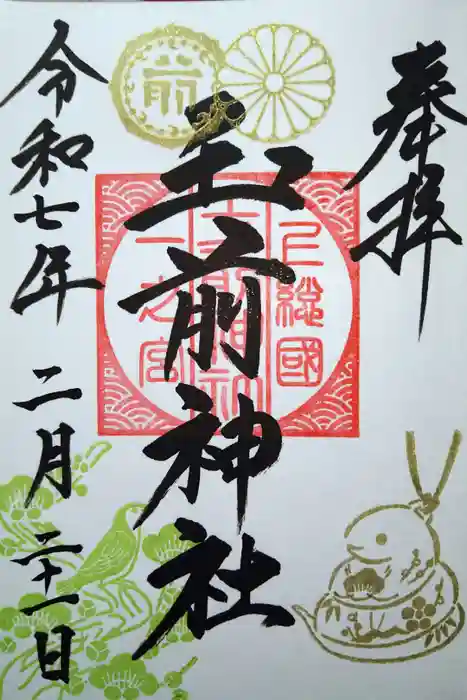 奉拝
前
上総國
玉前神社
一之宮
令和七年 二月 二十一日